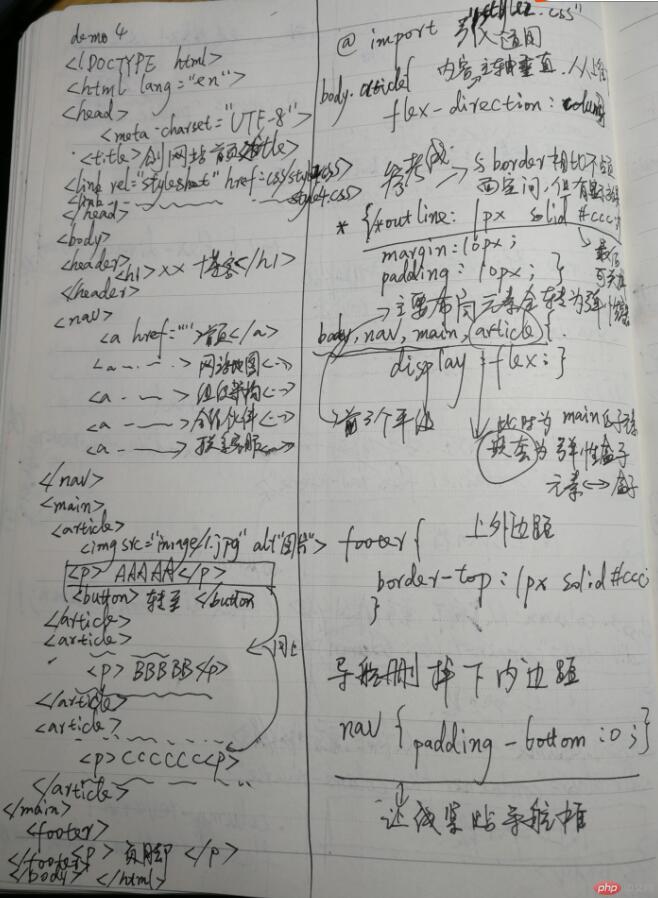 demo 4
<!DOCTYPE html>
<html lang="en">
<head>
<meta charset="UTF-8">
<title>创网站首页</title>
<link rel="stylesheet" href=css/style.css>
<link style4.css>
</head>
<body>
<header>
<h1>xx 博客</h1>
</header>
<nav>
<a href="">首页</a>
<a 网站地图
<a 组织架构
<a 合作伙伴
<a 联系客服
</nav>
<main>
<article>
<img src="image/1.jpg" alt"图片">
<p> AAAAA</p>
<button> 转至 </button
</article>
<article>
同上
<p> BBBBB<p>
</article>
<article>
<p>CCCCCC<p>
</article>
</main>
<footer>
<p> 页脚 </p>
</footer>
</body> </html>
"style2.css"
@ import 引入通用
内容主轴垂直
body.article{
flex-direction: column
参考线 与border相比不占
空间,但有
* {/*outline: 1px solid #ccc;
margin:10px;
padding: 10px; }
主要布局元素全转为弹性
body, nav, main, article{
display: flex; }
前3个平级
此时为main的子元素
嵌套为弹性盒子
元素<->盒子
上外边距
footer{
border-top: 1px solid #ccc
}
导航删掉下内边距
nav { padding-bottom:0; }
让线紧贴导航框
php